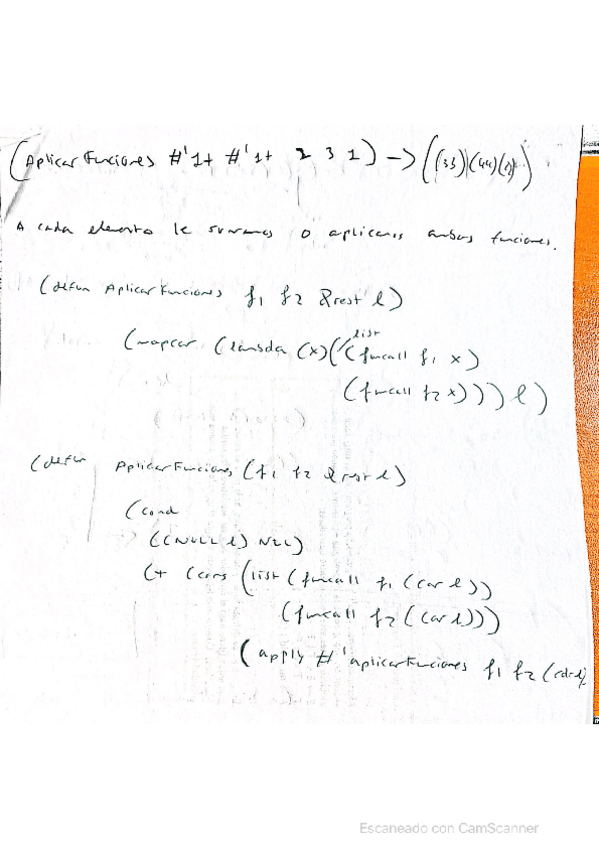 (Aplicar Funciones #'1+ #'1+ 2 3 1) -> ((33)(44)(2
A cada elemento le sumamos o aplicamos ambas funciones.
(defun Aplicar Funciones f1 f2 &rest l)
list
(mapcar (lambda (x)((funcall f1 x)
(funcall f2 x))) l)
(defun AplicarFunciones (f1 f2 &rest l)
(cond
((NULL l) NIL)
(t (cons (list (funcall f1 (car l))
(funcall f2 (car l)))
(apply #'aplicarFunciones f1 f2 (cdr l)
Escaneado con CamScanner